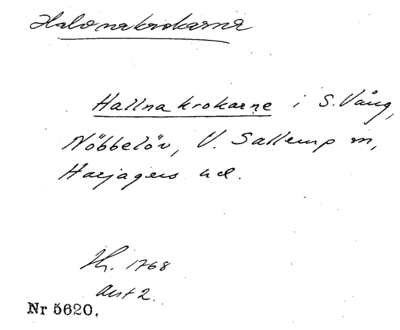 Halonakrokarne
Hallnakrokarne i S. Vång,
Nöbbelöv, V. Sallerup m,
Harjagers hd.
Jb. 1768
akt 2.
Nr 5620.